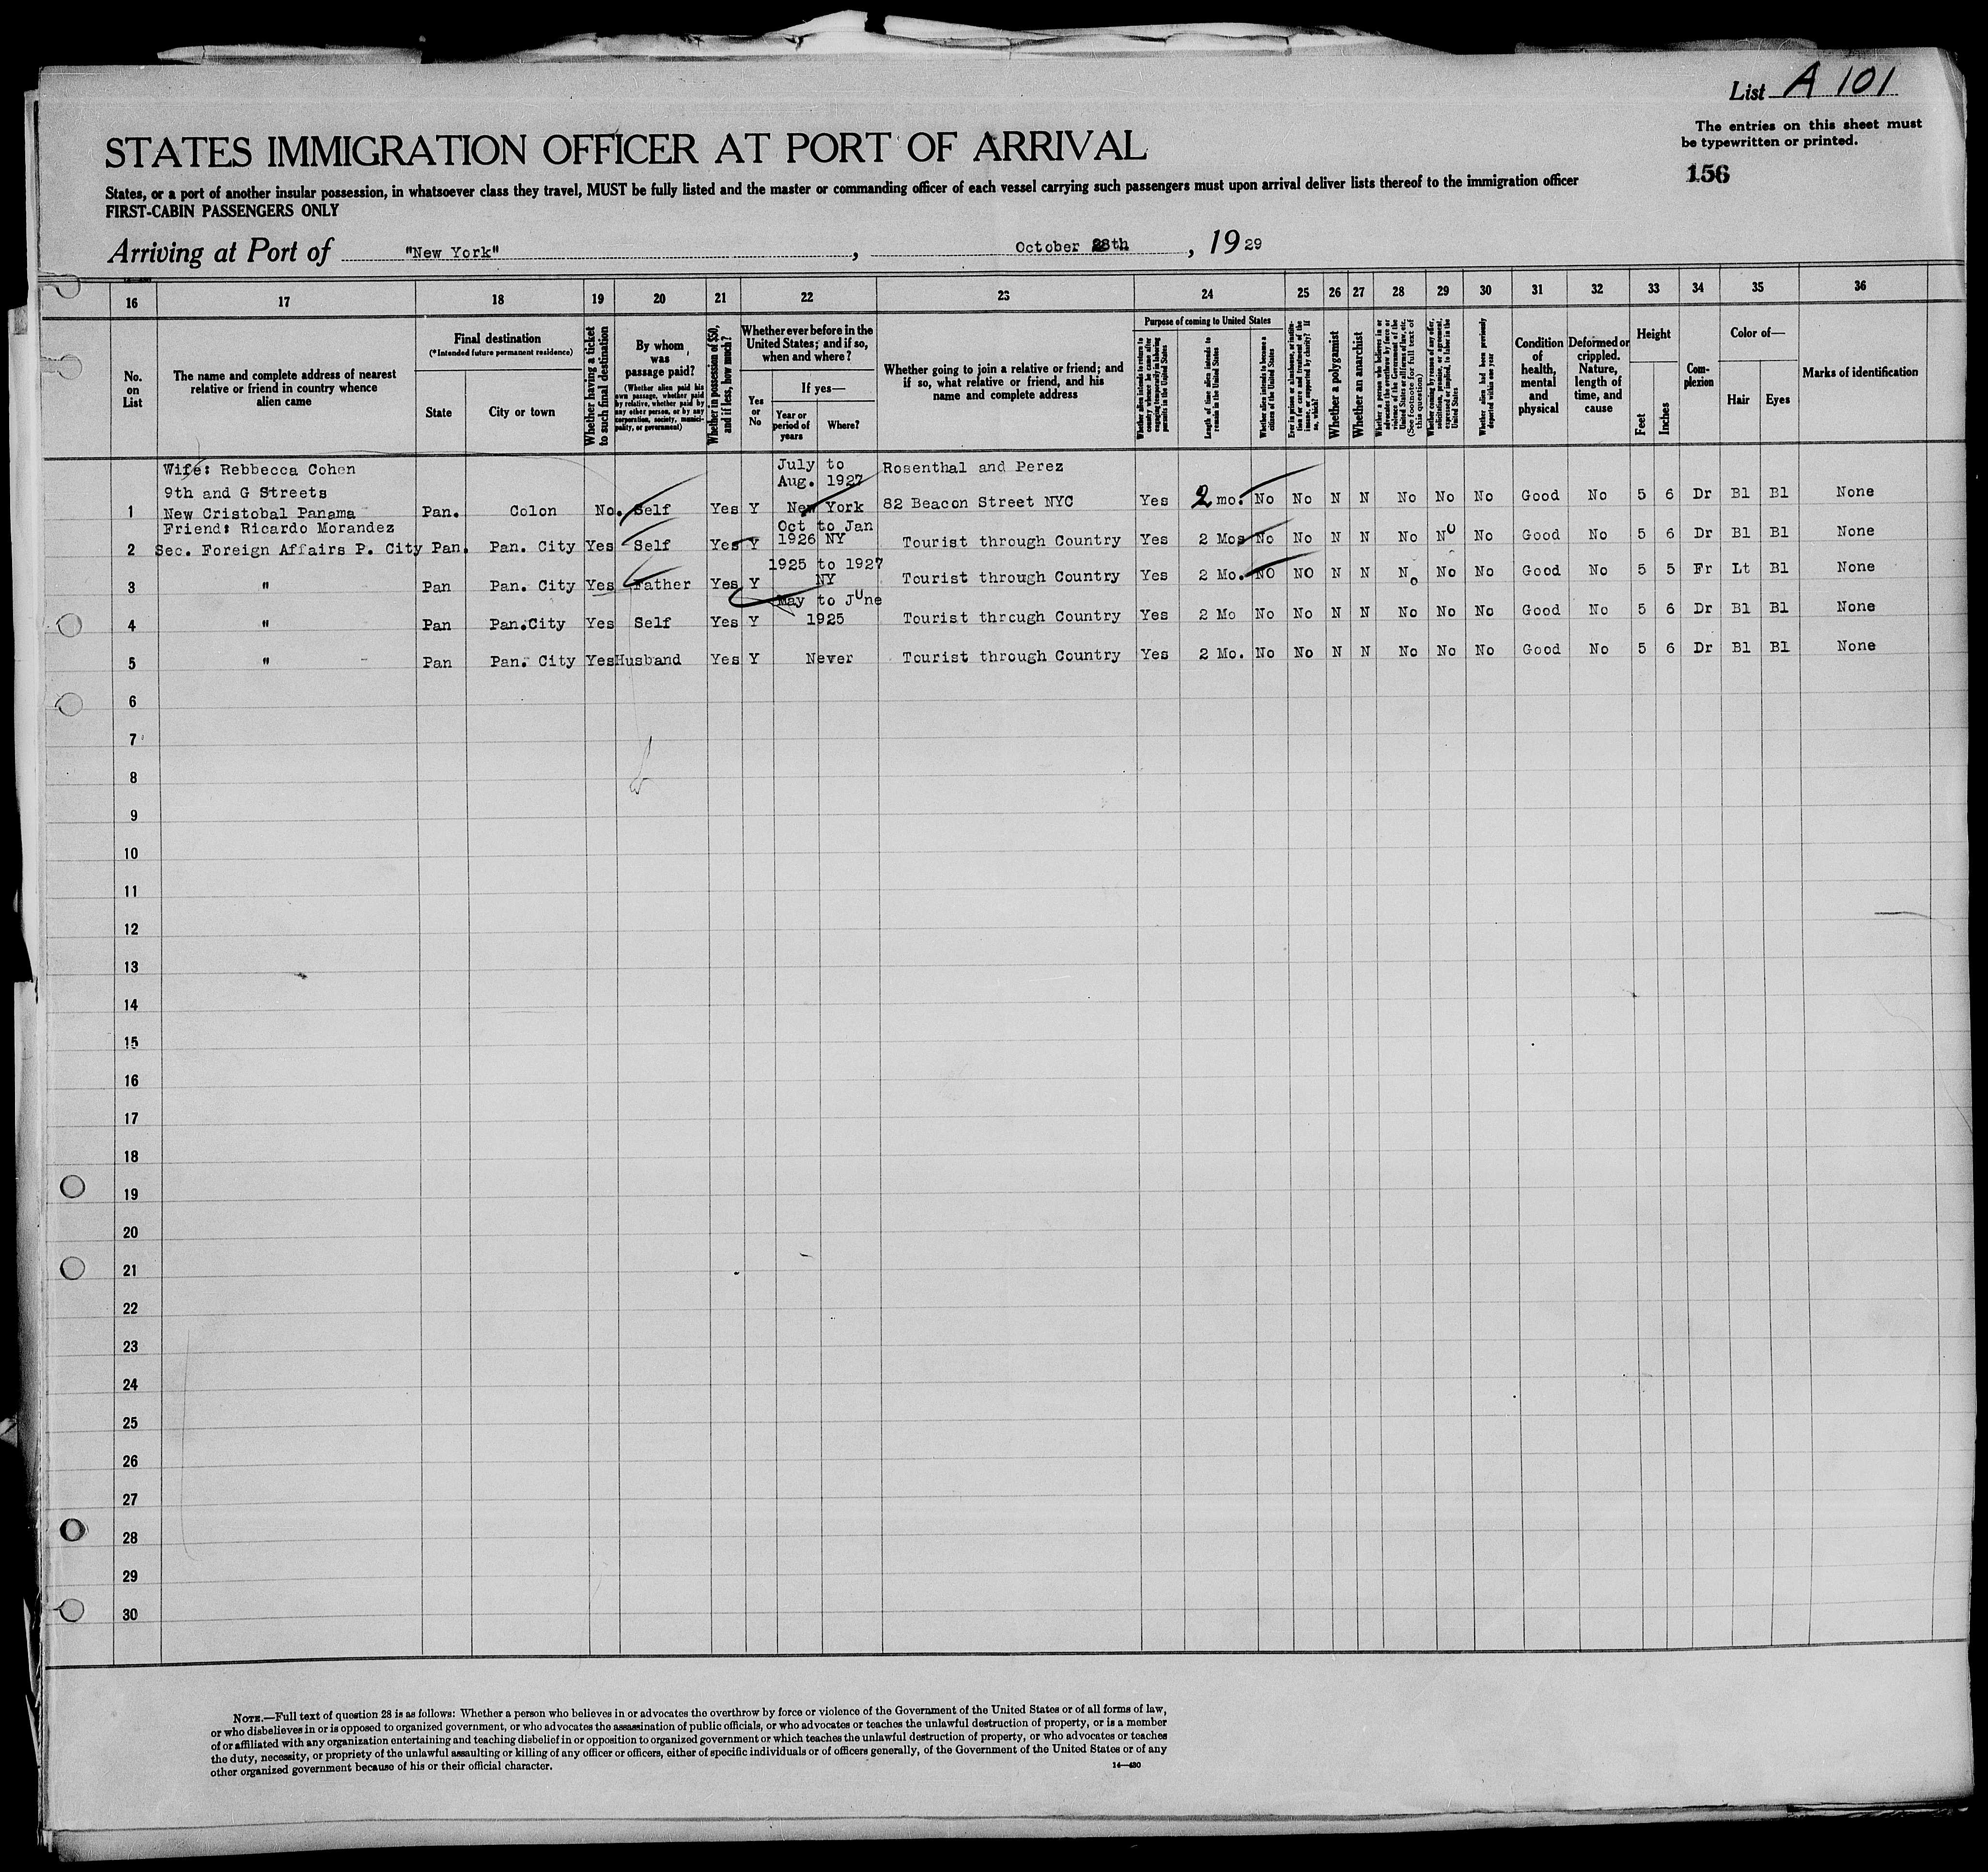 List A 101
The entries on this sheet must
be typewritten or printed.
156
STATES IMMIGRATION OFFICER AT PORT OF ARRIVAL
States, or a port of another insular possession, in whatsoever class they travel, MUST be fully listed and the master or commanding officer of each vessel carrying such passengers must upon arrival deliver lists thereof to the immigration officer
FIRST-CABIN PASSENGERS ONLY
Arriving at Port of "New York", October 28th, 1929
16 17 18 19 20 21 22 23 24 25 26 27 28 29 30 31 32 33 34 35 36
No. on List
The name and complete address of nearest relative or friend in country whence alien came
Final destination
(*Intended future permanent residence)
State
City or town
Whether having a ticket to such final destination
By whom was passage paid?
(Whether alien paid his own passage, whether paid by relative, whether paid by any other person, or by any corporation, society, municipality, or government)
Whether in possession of $50, and if less, how much?
Whether ever before in the United States; and if so, when and where?
Yes or No
If yes—
Year or period of years
Where?
Whether going to join a relative or friend; and if so, what relative or friend, and his name and complete address
Purpose of coming to United States
Whether alien intends to return to country whence he came after engaging temporarily in laboring pursuits in the United States
Length of time alien intends to remain in the United States
Whether alien intends to become a citizen of the United States
Ever in prison or almshouse, or institution for care and treatment of the insane, or supported by charity? If so, which?
Whether a polygamist
Whether an anarchist
Whether a person who believes in or advocates the overthrow by force or violence of the Government of the United States or all forms of law, etc. (See footnote for full text of this question)
Whether coming by reason of any offer, solicitation, promise, or agreement, expressed or implied, to labor in the United States
Whether alien had been previously deported within one year
Condition of health, mental and physical
Deformed or crippled. Nature, length of time, and cause
Height
Feet
Inches
Complexion
Color of—
Hair
Eyes
Marks of identification
Wife: Rebbecca Cohen July to Rosenthal and Perez
Aug. 1927
9th and G Streets
1 New Cristobal Panama Pan. Colon No. Self Yes Y New York 82 Beacon Street NYC Yes 2 mo. No No N N No No No Good No 5 6 Dr Bl Bl None
Friend: Ricardo Morandez Oct to Jan
2 Sec. Foreign Affairs P. City Pan. Pan. City Yes Self Yes Y 1926 NY Tourist through Country Yes 2 Mos No No N N No No No Good No 5 6 Dr Bl Bl None
1925 to 1927
3 " Pan Pan. City Yes Father Yes Y NY Tourist through Country Yes 2 Mo. NO NO N N No No No Good No 5 5 Fr Lt Bl None
May to JUne
4 " Pan Pan.City Yes Self Yes Y 1925 Tourist thrcugh Country Yes 2 Mo No No N N No No No Good No 5 6 Dr Bl Bl None
5 " Pan Pan. City Yes Husband Yes Y Never Tourist through Country Yes 2 Mo. No No N N No No No Good No 5 6 Dr Bl Bl None
6
7
8
9
10
11
12
13
14
15
16
17
18
19
20
21
22
23
24
25
26
27
28
29
30
NOTE.—Full text of question 28 is as follows: Whether a person who believes in or advocates the overthrow by force or violence of the Government of the United States or of all forms of law,
or who disbelieves in or is opposed to organized government, or who advocates the assassination of public officials, or who advocates or teaches the unlawful destruction of property, or is a member
of or affiliated with any organization entertaining and teaching disbelief in or opposition to organized government or which teaches the unlawful destruction of property, or who advocates or teaches
the duty, necessity, or propriety of the unlawful assaulting or killing of any officer or officers, either of specific individuals or of officers generally, of the Government of the United States or of any
other organized government because of his or their official character.
14—480